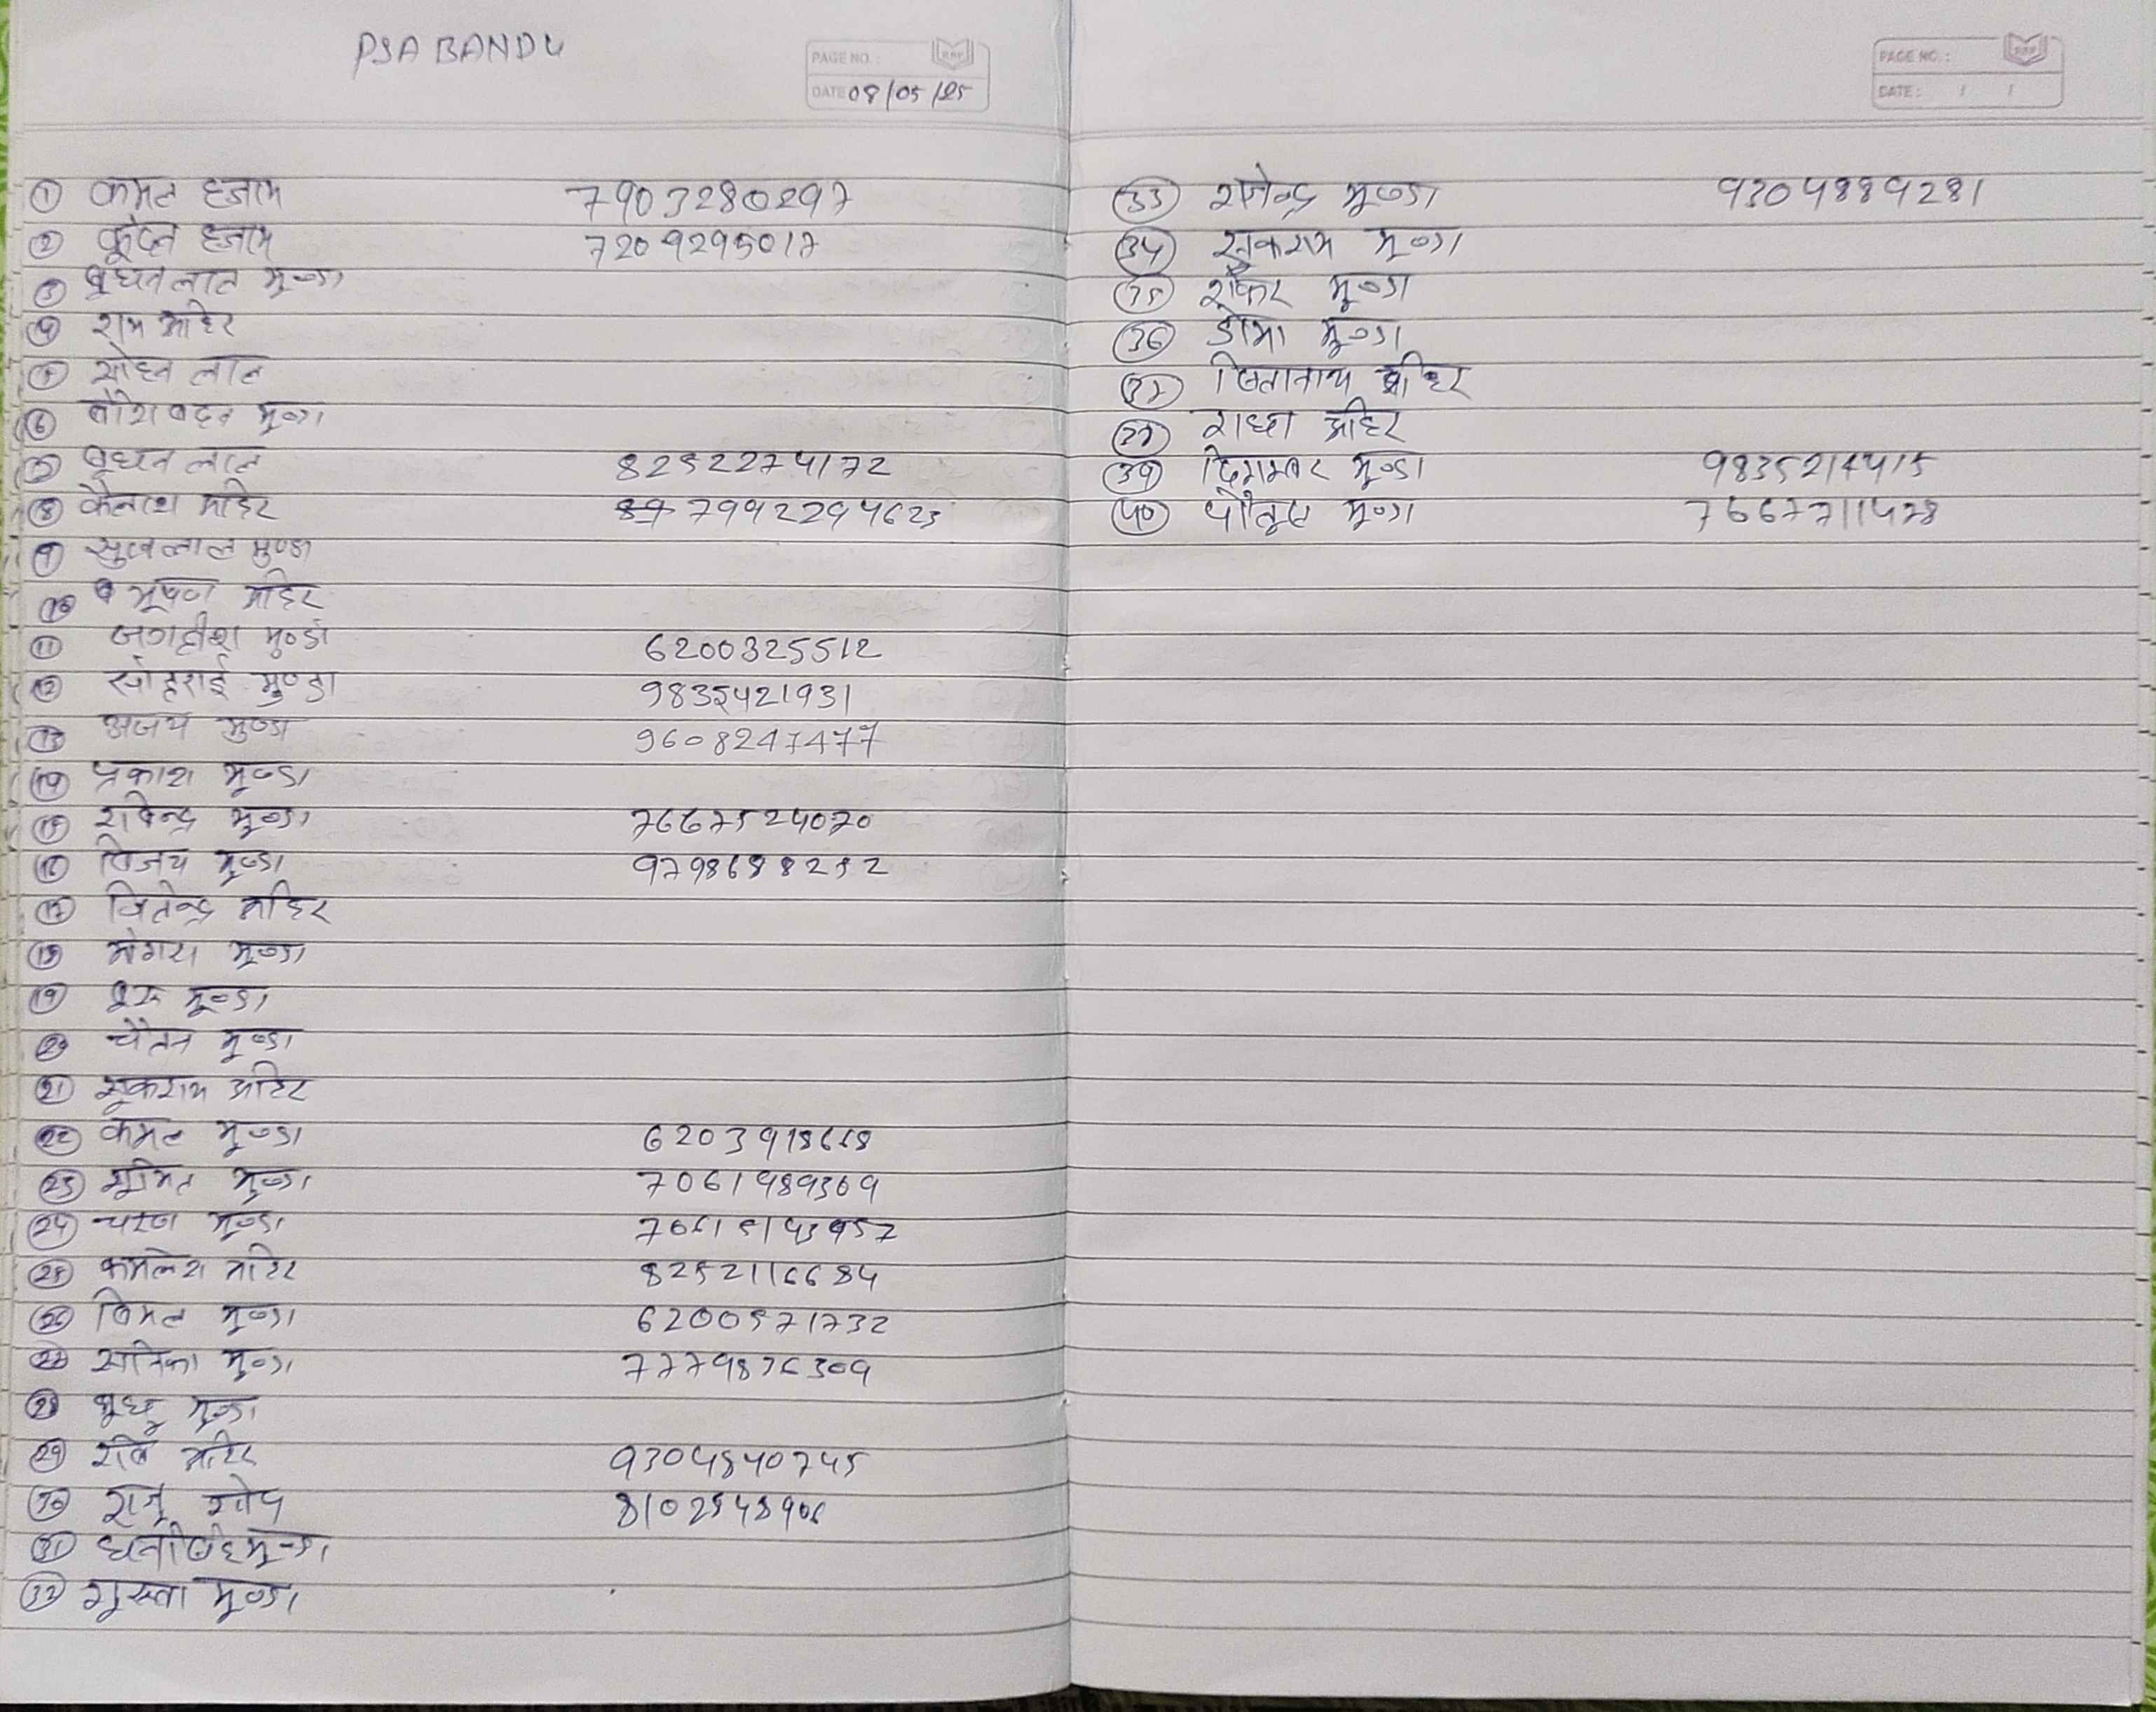 PSA BANDU
PAGE NO.:
DATE 08/05/25
① कमल हजाम 7903280297
② हजाम 7209295017
③ बुधन लाल मुण्डा
④ राम अहिर
⑤ मोहन लाल
⑥ मुण्डा
⑦ बुधन लाल 8252274172
⑧ कैलाश अहिर 79922944623
⑨ सुखलाल मुण्डा
⑩ भूषण अहिर
⑪ जगदीश मुण्डा 6200325512
⑫ सोहराई मुण्डा 9835421931
⑬ अजय मुण्डा 9608247477
⑭ प्रकाश मुण्डा
⑮ राजेन्द्र मुण्डा 7667524070
⑯ विजय मुण्डा 9798688252
⑰ जितेन्द्र अहिर
⑱ मंगरा मुण्डा
⑲ मुण्डा
⑳ चैतन मुण्डा
㉑ सुकराम अहिर
㉒ कमल मुण्डा 6203918668
㉓ सुमित मुण्डा 7061989309
㉔ चरण मुण्डा
㉕ कमलेश अहिर 8252116684
㉖ विमल मुण्डा 6200571732
㉗ मुण्डा 7779876309
㉘ बुधु मुण्डा
㉙ रवि अहिर 9304840745
㉚ राजू गोप 8102548906
㉛ मुण्डा
㉜ मुण्डा
PAGE NO.:
DATE: / /
㉝ राजेन्द्र मुण्डा 9304889281
㉞ सुकराम मुण्डा
㉟ शंकर मुण्डा
㊱ डोमा मुण्डा
㊲ अहिर
㊳ राधा अहिर
㊴ दिगम्बर मुण्डा 9835214415
㊵ पौलुस मुण्डा 7667711478